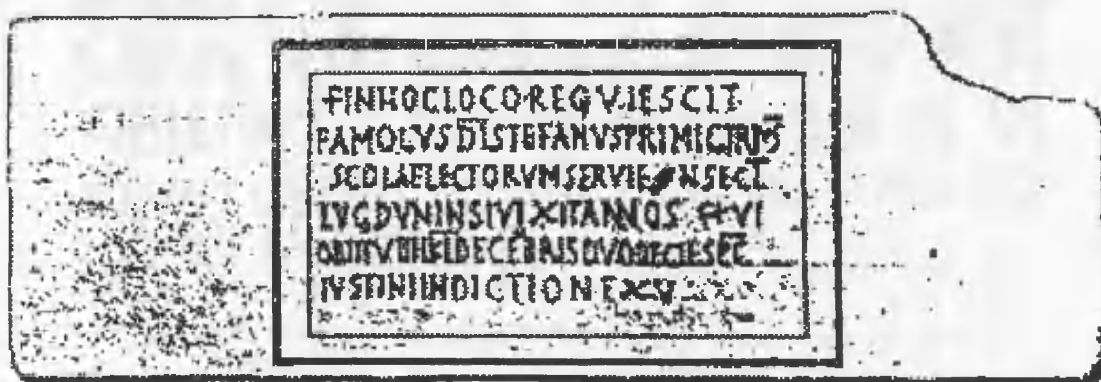 +INHOCLOCOREQVIESCIT
FAMOLVSDISTEFANVSPRIMICIRIVS
SCOLAELECTORVMSERVIENSECL
LVGDVNINSIVIXITANNOS
OBIITVIIIKLDECEBRISDVODECIESPC
IVSTINIINDICTIONEXV